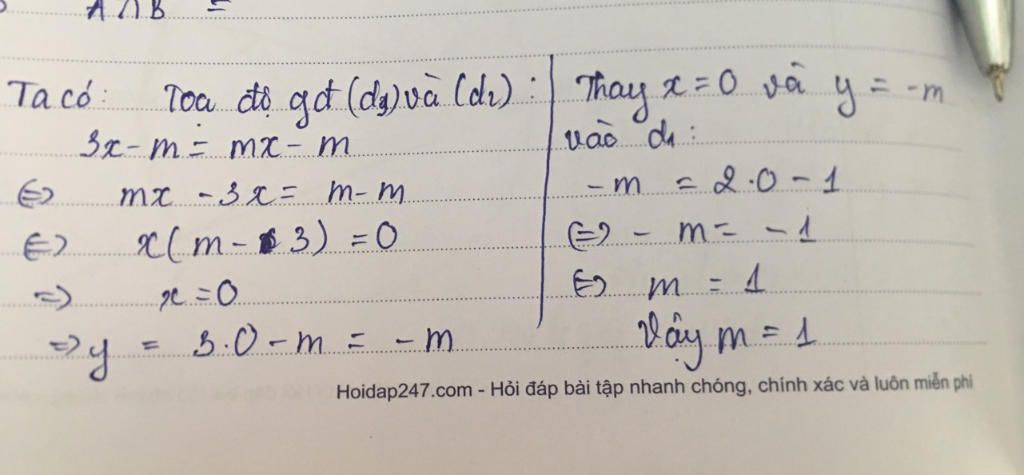 A ∩ B =
Ta có: Toạ độ gđ (d₃) và (d₂) :
3x - m = mx - m
⇔ mx - 3x = m - m
⇔ x(m - 3) = 0
=> x = 0
=> y = 3.0 - m = -m
Thay x = 0 và y = -m
vào d₁ :
- m = 2.0 - 1
⇔ - m = - 1
⇔ m = 1
Vậy m = 1
Hoidap247.com - Hỏi đáp bài tập nhanh chóng, chính xác và luôn miễn phí